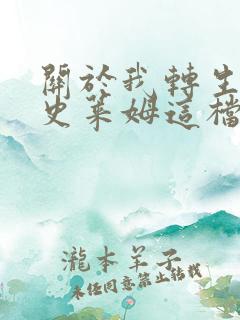 關於我轉生
史萊姆這檔
瀧本羊子
未經同意禁止轉載